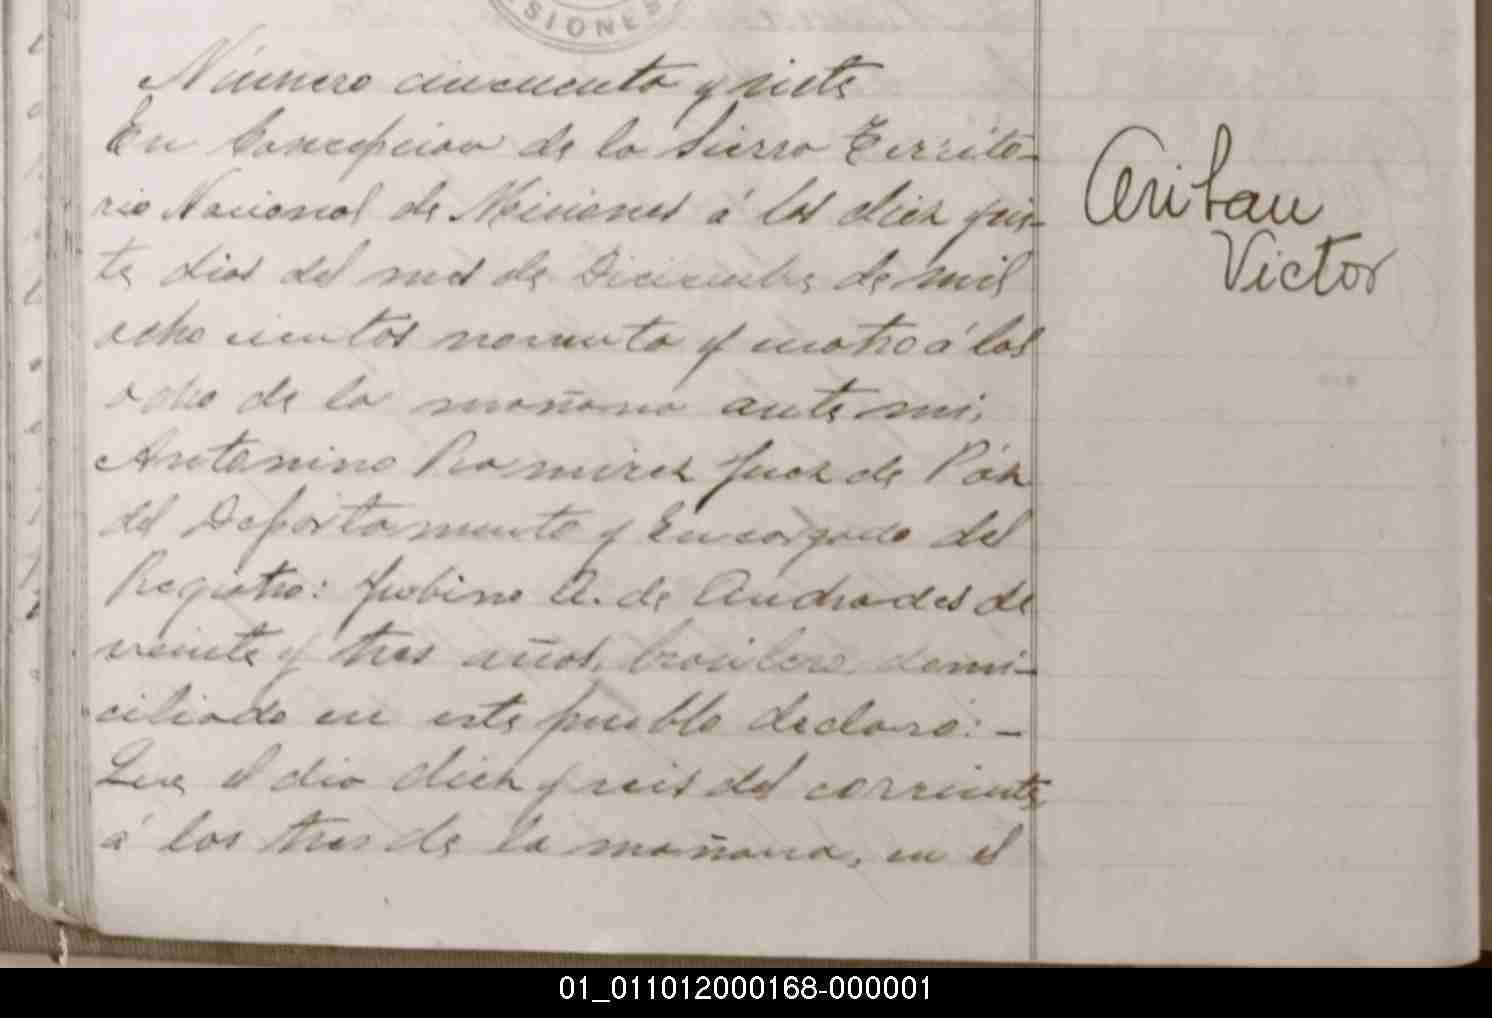 SIONES
Número cincuenta y siete
En Concepcion de la Sierra Territo-
rio Nacional de Misiones á los diez y sie-
te dias del mes de Diciembre de mil
ocho cientos noventa y cuatro á las
ocho de la mañana ante mi,
Antonino Ramirez Juez de Páz
del Departamento y Encargado del
Registro: Jubino A. de Andrades de
veinte y tres años, brasilero domi-
ciliado en este pueblo declaró: -
Que el dia diez y seis del corriente
á las tres de la mañana, en el
Aribau
Victor
01_011012000168-000001